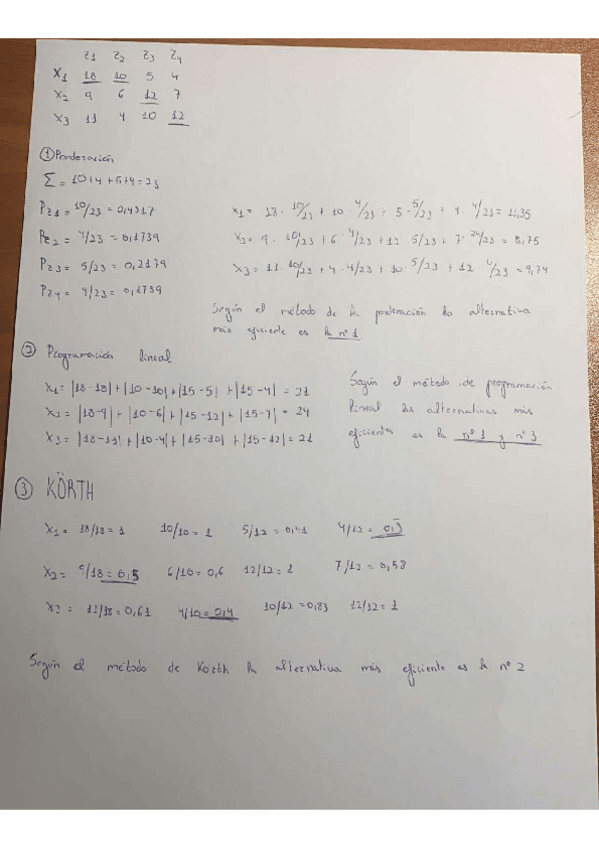 Z1 Z2 Z3 Z4
X1 18 10 5 4
X2 9 6 12 7
X3 11 4 10 12
① Ponderación
Σ = 10+4+5+4=23
Pz1 = 10/23 = 0,4347
Pz2 = 4/23 = 0,1739
Pz3 = 5/23 = 0,2179
Pz4 = 4/23 = 0,1739
X1 = 18 · 10/23 + 10 · 4/23 + 5 · 5/23 + 4 · 4/23 = 11,35
X2 = 9 · 10/23 + 6 · 4/23 + 12 · 5/23 + 7 · 24/23 = 8,75
X3 = 11 · 10/23 + 4 · 4/23 + 10 · 5/23 + 12 · 4/23 = 9,74
Según el método de la ponderación la alternativa
más eficiente es la nº 1
② Programación lineal
X1 = |18-18| + |10-10| + |15-5| + |15-4| = 21
X2 = |18-9| + |10-6| + |15-12| + |15-7| = 24
X3 = |18-11| + |10-4| + |15-10| + |15-12| = 21
Según el método de programación
lineal las alternativas más
eficientes es la nº 1 y nº 3
③ KÖRTH
X1 = 18/18 = 1 10/10 = 1 5/12 = 0,41 4/12 = 0,3
X2 = 9/18 = 0,5 6/10 = 0,6 12/12 = 1 7/12 = 0,58
X3 = 11/18 = 0,61 4/10 = 0,4 10/12 = 0,83 12/12 = 1
Según el método de Körth la alternativa más eficiente es la nº 2